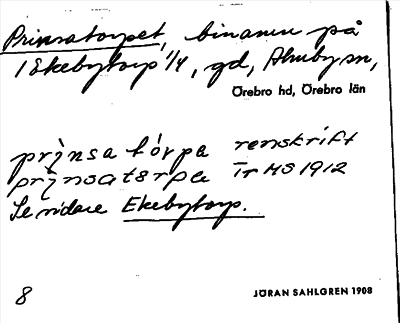 Prinsatorpet, binamn på
1 Ekebytorp 1/4, gd, Almby sn,
Örebro hd, Örebro län
prinsa tórpa renskrift
prinsatɛrpa Ir HS 1912
Se vidare Ekebytorp.
8
JÖRAN SAHLGREN 1908